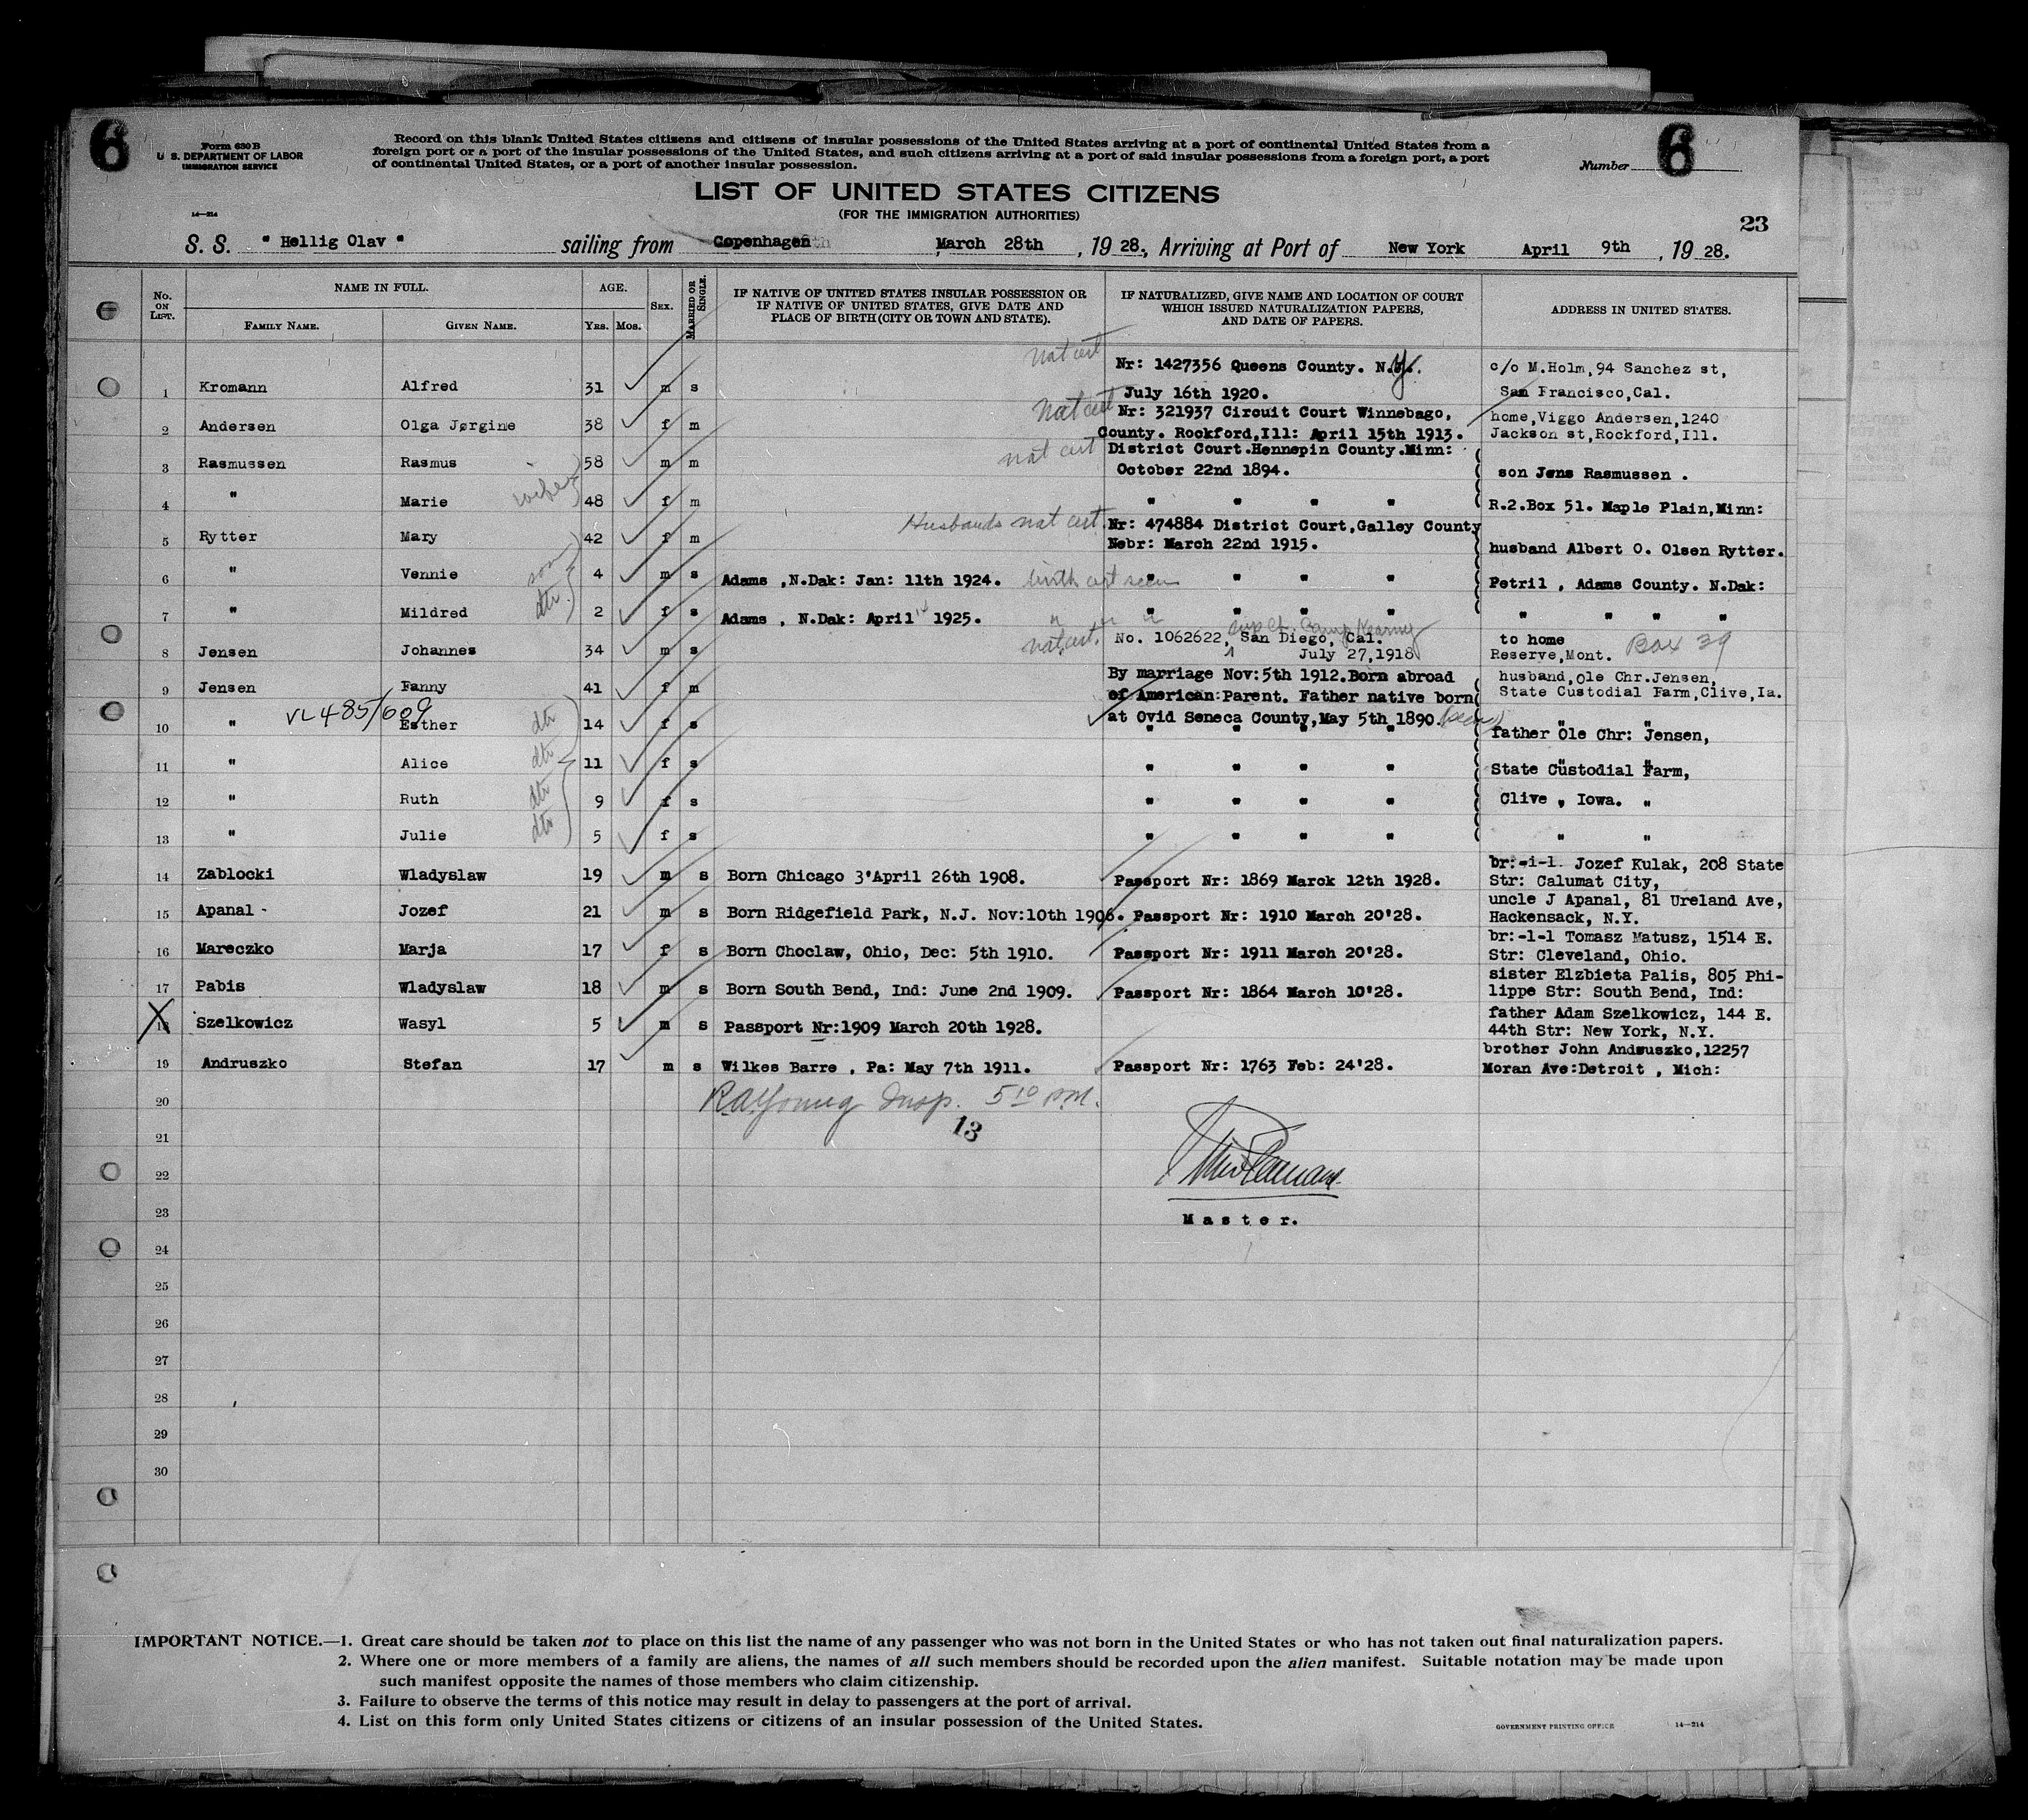 6
Form 630 B
U. S. DEPARTMENT OF LABOR
IMMIGRATION SERVICE
Record on this blank United States citizens and citizens of insular possessions of the United States arriving at a port of continental United States from a
foreign port or a port of the insular possessions of the United States, and such citizens arriving at a port of said insular possessions from a foreign port, a port
of continental United States, or a port of another insular possession.
Number 6
LIST OF UNITED STATES CITIZENS
(FOR THE IMMIGRATION AUTHORITIES)
14—214
23
S. S. " Hellig Olav " sailing from Copenhagen , March 28th , 19 28, Arriving at Port of New York April 9th , 19 28.
No. ON LIST. NAME IN FULL. FAMILY NAME. GIVEN NAME. AGE. YRS. MOS. SEX. MARRIED OR SINGLE.
IF NATIVE OF UNITED STATES INSULAR POSSESSION OR
IF NATIVE OF UNITED STATES, GIVE DATE AND
PLACE OF BIRTH (CITY OR TOWN AND STATE).
IF NATURALIZED, GIVE NAME AND LOCATION OF COURT
WHICH ISSUED NATURALIZATION PAPERS,
AND DATE OF PAPERS.
ADDRESS IN UNITED STATES.
nat cert Nr: 1427356 Queens County. N.Y. c/o M.Holm,94 Sanchez st,
1 Kromann Alfred 31 m s July 16th 1920. San Francisco,Cal.
Nat cert Nr: 321937 Circuit Court Winnebago, home,Viggo Andersen,1240
2 Andersen Olga Jørgine 38 f m County. Rockford,Ill: April 15th 1913. Jackson st,Rockford,Ill.
nat cert District Court.Hennepin County.Minn:
3 Rasmussen Rasmus 58 m m October 22nd 1894. son Jens Rasmussen .
4 " Marie wife 48 f m " " " " R.2.Box 51. Maple Plain,Minn:
Husbands nat cert. Nr: 474884 District Court,Galley County
5 Rytter Mary 42 f m Nebr: March 22nd 1915. husband Albert O. Olsen Rytter.
6 " Vennie son 4 m s Adams ,N.Dak: Jan: 11th 1924. birth cert seen " " " " Petril , Adams County. N.Dak:
7 " Mildred dtr 2 f s Adams , N.Dak: April 1925. " " " " " " " " " " "
nat cert. No. 1062622, Sup Ct. Camp Kearny San Diego, Cal. to home
8 Jensen Johannes 34 m s July 27,1918 Reserve,Mont. Box 39
By marriage Nov:5th 1912.Born abroad husband,Ole Chr.Jensen,
9 Jensen Fanny 41 f m of American:Parent. Father native born State Custodial Farm,Clive,Ia.
VL 485/609
at Ovid Seneca County,May 5th 1890. (seen)
10 " Esther dtr 14 f s " " " " father Ole Chr: Jensen,
11 " Alice dtr 11 f s " " " " State Custodial Farm,
12 " Ruth dtr 9 f s " " " " Clive , Iowa. "
13 " Julie dtr 5 f s " " " " " "
br:-i-l. Jozef Kulak, 208 State
14 Zablocki Wladyslaw 19 m s Born Chicago 3'April 26th 1908. Passport Nr: 1869 Marck 12th 1928. Str: Calumat City,
uncle J Apanal, 81 Ureland Ave,
15 Apanal - Jozef 21 m s Born Ridgefield Park, N.J. Nov:10th 1906. Passport Nr: 1910 March 20'28. Hackensack, N.Y.
br:-l-l Tomasz Matusz, 1514 E.
16 Mareczko Marja 17 f s Born Choclaw, Ohio, Dec: 5th 1910. Passport Nr: 1911 March 20'28. Str: Cleveland, Ohio.
sister Elzbieta Palis, 805 Phi-
17 Pabis Wladyslaw 18 m s Born South Bend, Ind: June 2nd 1909. Passport Nr: 1864 March 10'28. lippe Str: South Bend, Ind:
father Adam Szelkowicz, 144 E.
X 18 Szelkowicz Wasyl 5 m s Passport Nr:1909 March 20th 1928. 44th Str: New York, N.Y.
brother John Andruszko,12257
19 Andruszko Stefan 17 m s Wilkes Barre , Pa: May 7th 1911. Passport Nr: 1763 Feb: 24'28. Moran Ave:Detroit , Mich:
20 R.A.Young Insp. 5 10 pm.
13
21
22
23 Master.
24
25
26
27
28
29
30
IMPORTANT NOTICE.—1. Great care should be taken not to place on this list the name of any passenger who was not born in the United States or who has not taken out final naturalization papers.
2. Where one or more members of a family are aliens, the names of all such members should be recorded upon the alien manifest. Suitable notation may be made upon
such manifest opposite the names of those members who claim citizenship.
3. Failure to observe the terms of this notice may result in delay to passengers at the port of arrival.
4. List on this form only United States citizens or citizens of an insular possession of the United States.
GOVERNMENT PRINTING OFFICE 14—214